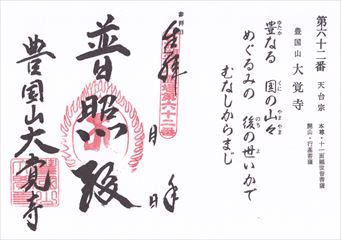 第六十二番 天台宗 本尊・十一面観世音菩薩
開山・行基菩薩
豊国山 大覚寺
豊なる 国の山々
ゆたか くに やまやま
めぐるみの 後の世いかで
のち よ
むなしからまじ
奉拝
月 日
普照殿
豊国山大覚寺